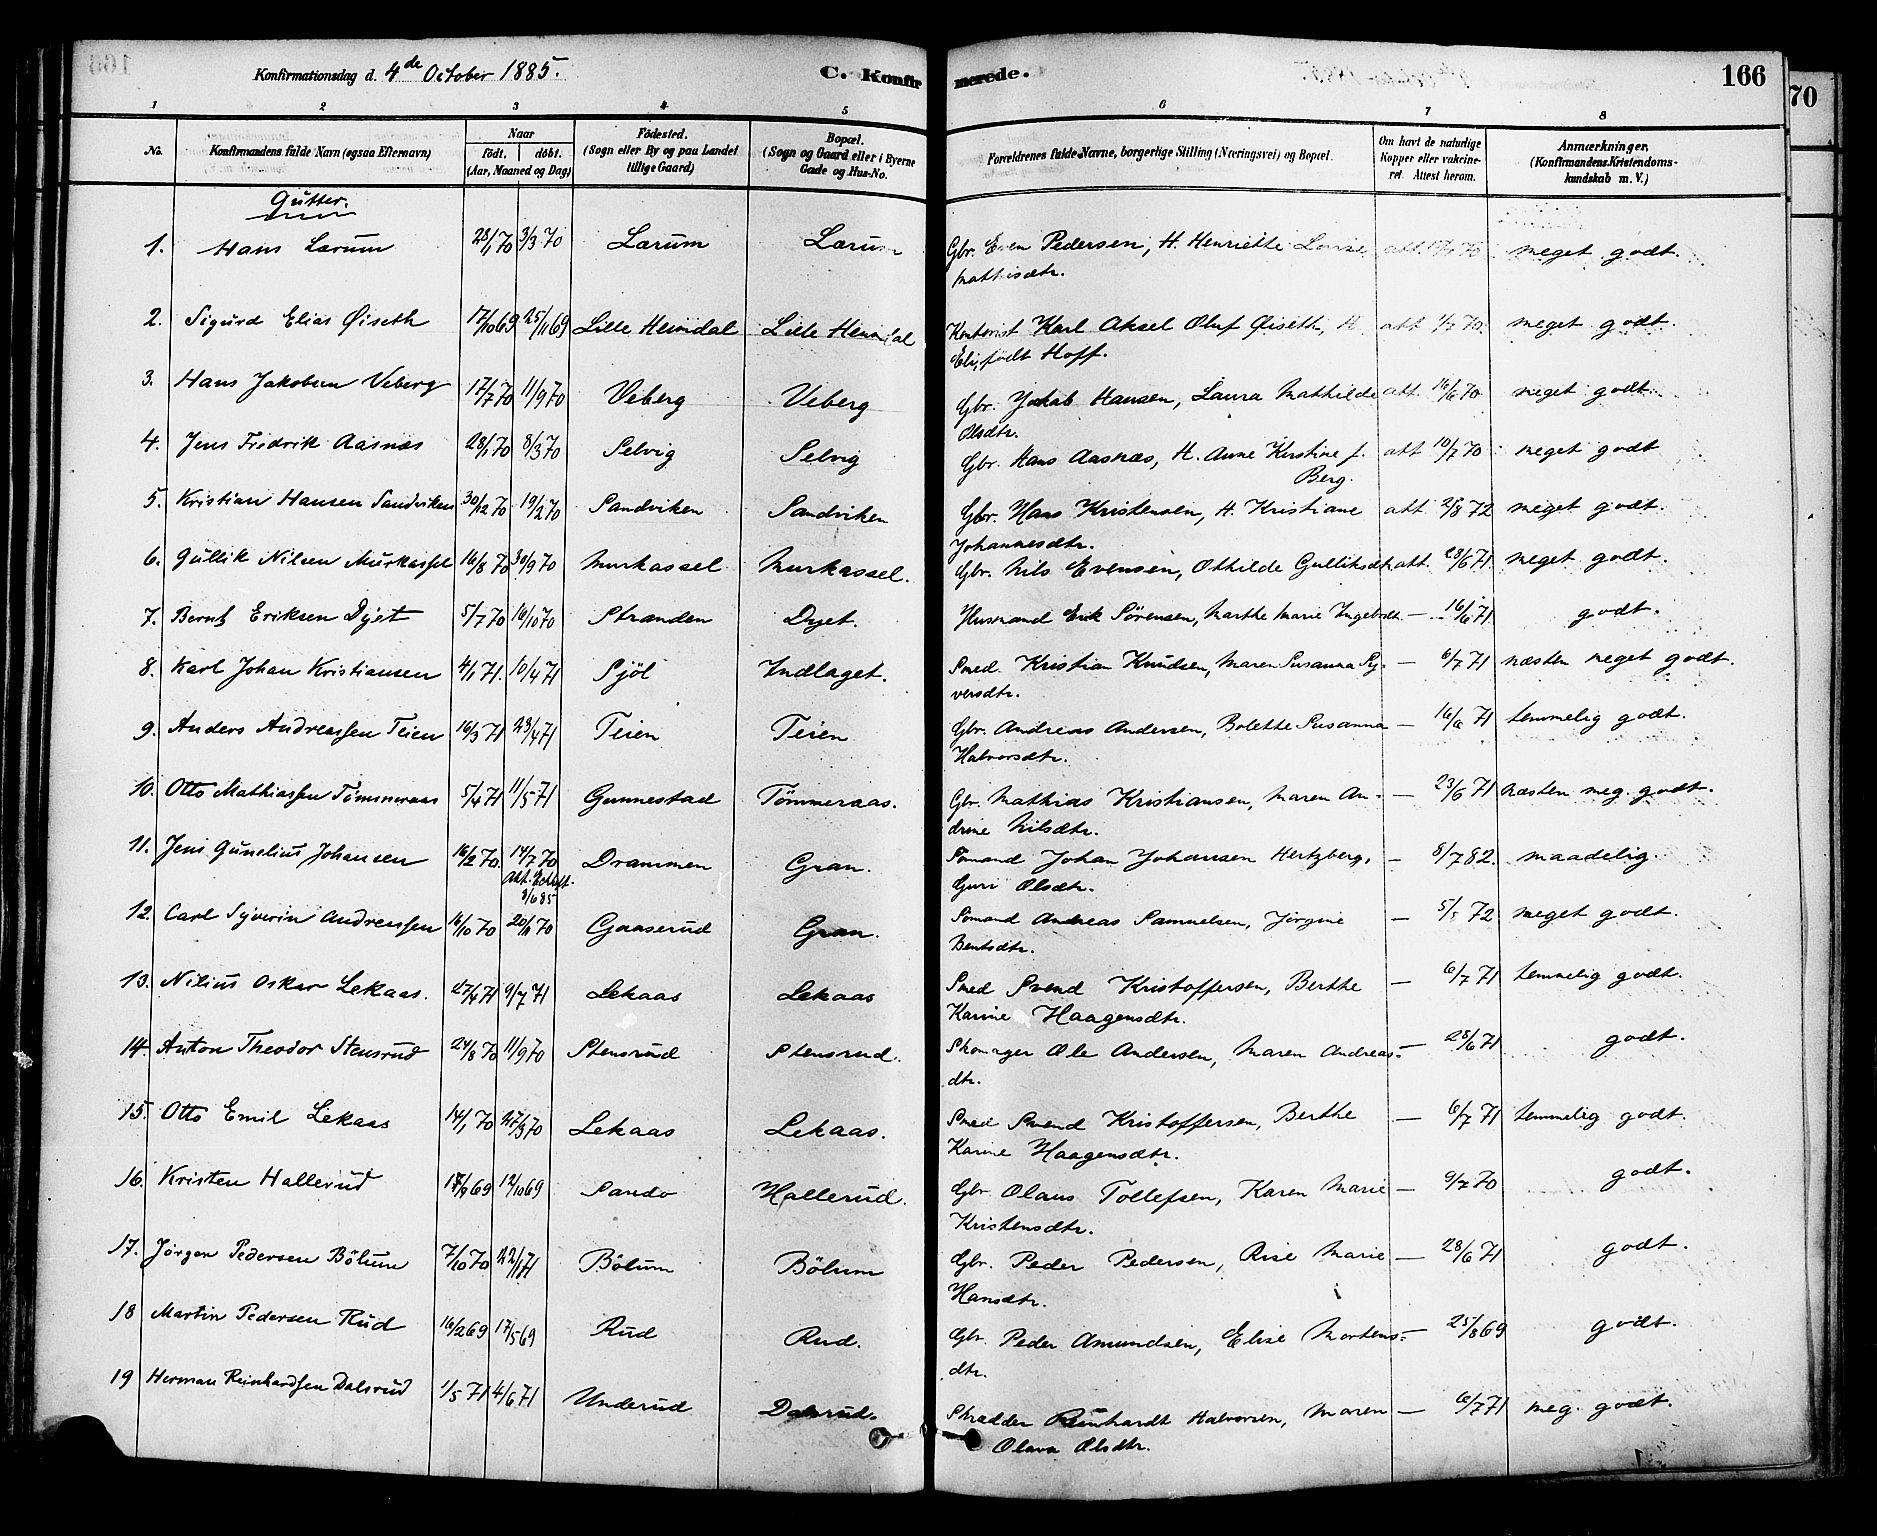 Konfirmationsdag d. 4de October 1885.
C. Konfirmerede.
166
70
1 2 3 4 5 6 7 8
No.
Konfirmandens fulde Navn (ogsaa Efternavn)
Naar
födt. döbt.
(Aar, Maaned og Dag)
Födested.
(Sogn eller By og paa Landet
tillige Gaard)
Bopæl.
(Sogn og Gaard eller i Byerne
Gade og Hus-No.
Forældrenes fulde Navne, borgerlige Stilling (Næringsvei) og Bopæl.
Om havt de naturlige
Kopper eller vakcine-
ret. Attest herom.
Anmærkninger.
(Konfirmandens Kristendoms-
kundskab m. V.)
Gutter.
1. Hans Larum 28/1 70 3/3 70 Larum Larum Gbr. Even Pedersen, H. Henriette Lovise att. 70 meget godt.
Mathisdtr.
2. Sigurd Elias Øiseth 17/10 69 25/11 69 Lille Heimdal Lille Heimdal Kontorist Karl Aksel Oluf Øiseth, H. att 1/7 70. meget godt.
Elis, født Hoff.
3. Hans Jakobsen Veberg 17/7 70 11/9 70 Veberg Veberg Gbr. Jakob Hansen, Laura Mathilde att. 16/6 70 meget godt.
Olsdtr.
4. Jens Fredrik Aasnæs 28/1 70 8/3 70 Selvig Selvig Gbr. Hans Aasnæs, H. Anne Kirstine f. att 10/7 70 meget godt
Berg.
5. Kristian Hansen Sandviken 30/12 70 19/2 70 Sandviken Sandviken Gbr. Hans Kristensen, H. Kristiane att 25/8 72 meget godt.
Johannesdtr.
6. Gullik Nilsen Murkassel 16/8 70 30/9 70 Murkassel Murkassel. Gbr. Nils Evensen, Othilde Gulliksdtr. att. 28/6 71 meget godt.
7. Bernt Eriksen Dyet 5/7 70 16/10 70 Stranden Dyet. Husmand Erik Sörensen, Marthe Marie Ingebrdt. — 16/6 71 godt.
8. Karl Johan Kristiansen 4/1 71. 10/4 71 Sjöl Indlaget. Smed Kristian Knudsen, Maren Susanna Sy- — 6/7 71 næsten meget godt.
versdtr.
9. Anders Andreassen Teien 16/3 71 23/4 71 Teien Teien Gbr. Andreas Andersen, Bolette Susanna — 16/6 71 temmelig godt.
Halvorsdtr.
10. Otto Mathiassen Tömmeraas 5/4 71 11/5 71 Gunnestad Tömmeraas. Gbr. Mathias Kristiansen, Maren An- — 23/6 71 næsten meg. godt.
drine Nilsdtr.
11. Jens Gunelius Johansen 16/2 70. 14/7 70 Drammen Gran. Sömand Johan Johansen Hertzberg, — 8/7 82. maadelig.
Att. 3/6 85 Guri Olsdtr.
12. Carl Syverin Andreassen 16/10 70 20/11 70 Gaaserud Gran. Sömand Andreas Samuelsen, Jörgine — 5/5 72 meget godt.
Bentsdtr.
13. Nilius Oskar Lekaas. 27/4 71 9/7 71 Lekaas Lekaas Smed Svend Kristoffersen, Berthe — 6/7 71 temmelig godt.
Karine Haagensdtr.
14. Anton Theodor Stensrud 24/8 70 11/9 70 Stensrud Stensrud. Skomager Ole Andersen, Maren Andreas- — 28/6 71 godt.
dtr.
15. Otto Emil Lekaas 14/1 70 27/3 70 Lekaas Lekaas. Smed Svend Kristoffersen, Berthe — 6/7 71 temmelig godt.
Karine Haagensdtr.
16. Kristen Hallerud 17/9 69 12/10 69 Sando Hallerud. Gbr Olaus Tollefsen, Karen Marie — 9/7 70 godt.
Kristensdtr.
17. Jörgen Pedersen Bölum 7/10 70 22/1 71 Bölum Bölum Gbr. Peder Pedersen, Rise Marie — 28/6 71 godt.
Hansdtr.
18 Martin Pedersen Rud 16/2 69 17/5 69 Rud Rud. Gbr. Peder Amundsen, Elise Mortens- — 25/8 69 godt.
dtr.
19 Herman Reinhardsen Dalsrud 1/5 71 4/6 71 Underud Dalsrud. Skrædder Reinhardt Halvorsen, Maren — 6/7 71 meg. godt.
Olava Olsdtr.